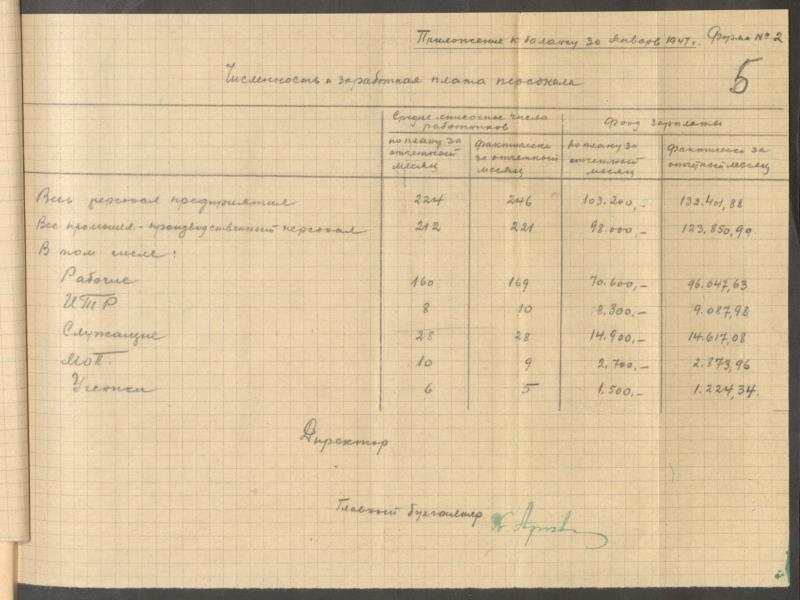 Приложение к балансу за январь 1947 г. Форма № 2
5
Численность и заработная плата персонала
Средне-списочное число работников Фонд зарплаты
по плану за отчетный месяц фактически за отчетный месяц по плану за отчетный месяц фактически за отчетный месяц
Весь персонал предприятия 224 246 103.200,- 132.401,88
Вес промышл.-производственный персонал 212 221 98.000,- 123.850,99
В том числе:
Рабочие 160 169 70.600,- 96.047,63
ИТР 8 10 8.300,- 9.087,98
Служащие 28 28 14.900,- 14.617,08
МОП. 10 9 2.700,- 2.873,96
Ученики 6 5 1.500,- 1.224,34.
Директор
Главный бухгалтер